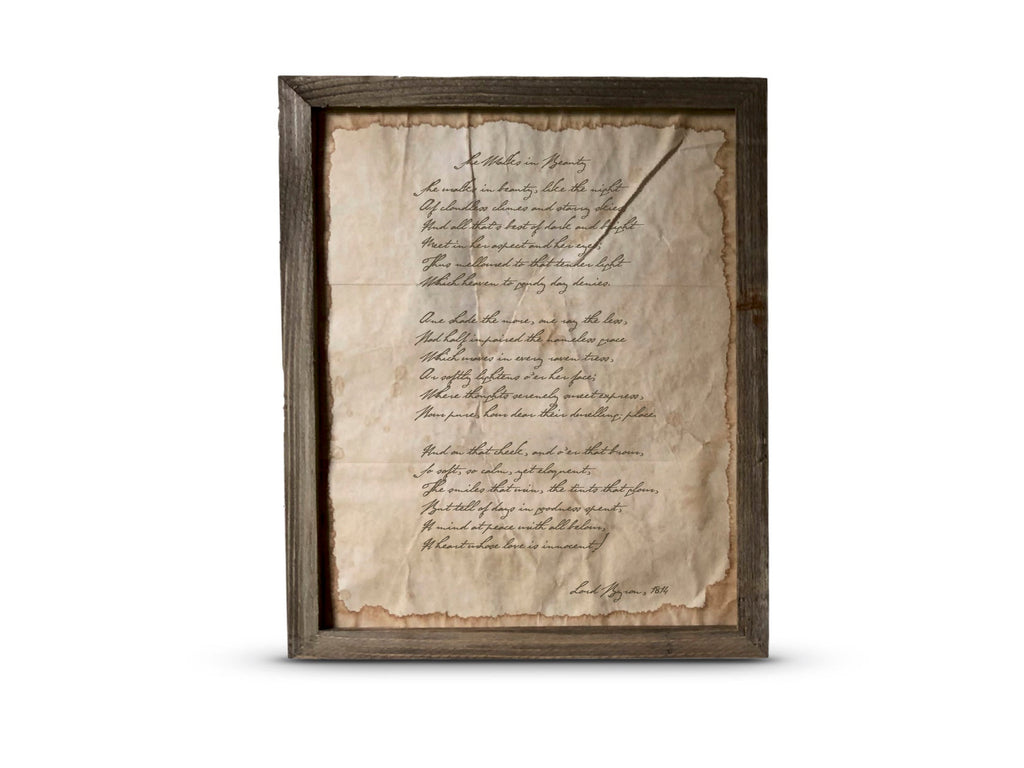 She Walks in Beauty
She walks in beauty, like the night
Of cloudless climes and starry skies;
And all that's best of dark and bright
Meet in her aspect and her eyes;
Thus mellowed to that tender light
Which heaven to gaudy day denies.
One shade the more, one ray the less,
Had half impaired the nameless grace
Which waves in every raven tress,
Or softly lightens o'er her face;
Where thoughts serenely sweet express,
How pure, how dear their dwelling-place.
And on that cheek, and o'er that brow,
So soft, so calm, yet eloquent,
The smiles that win, the tints that glow,
But tell of days in goodness spent,
A mind at peace with all below,
A heart whose love is innocent!
Lord Byron, 1814